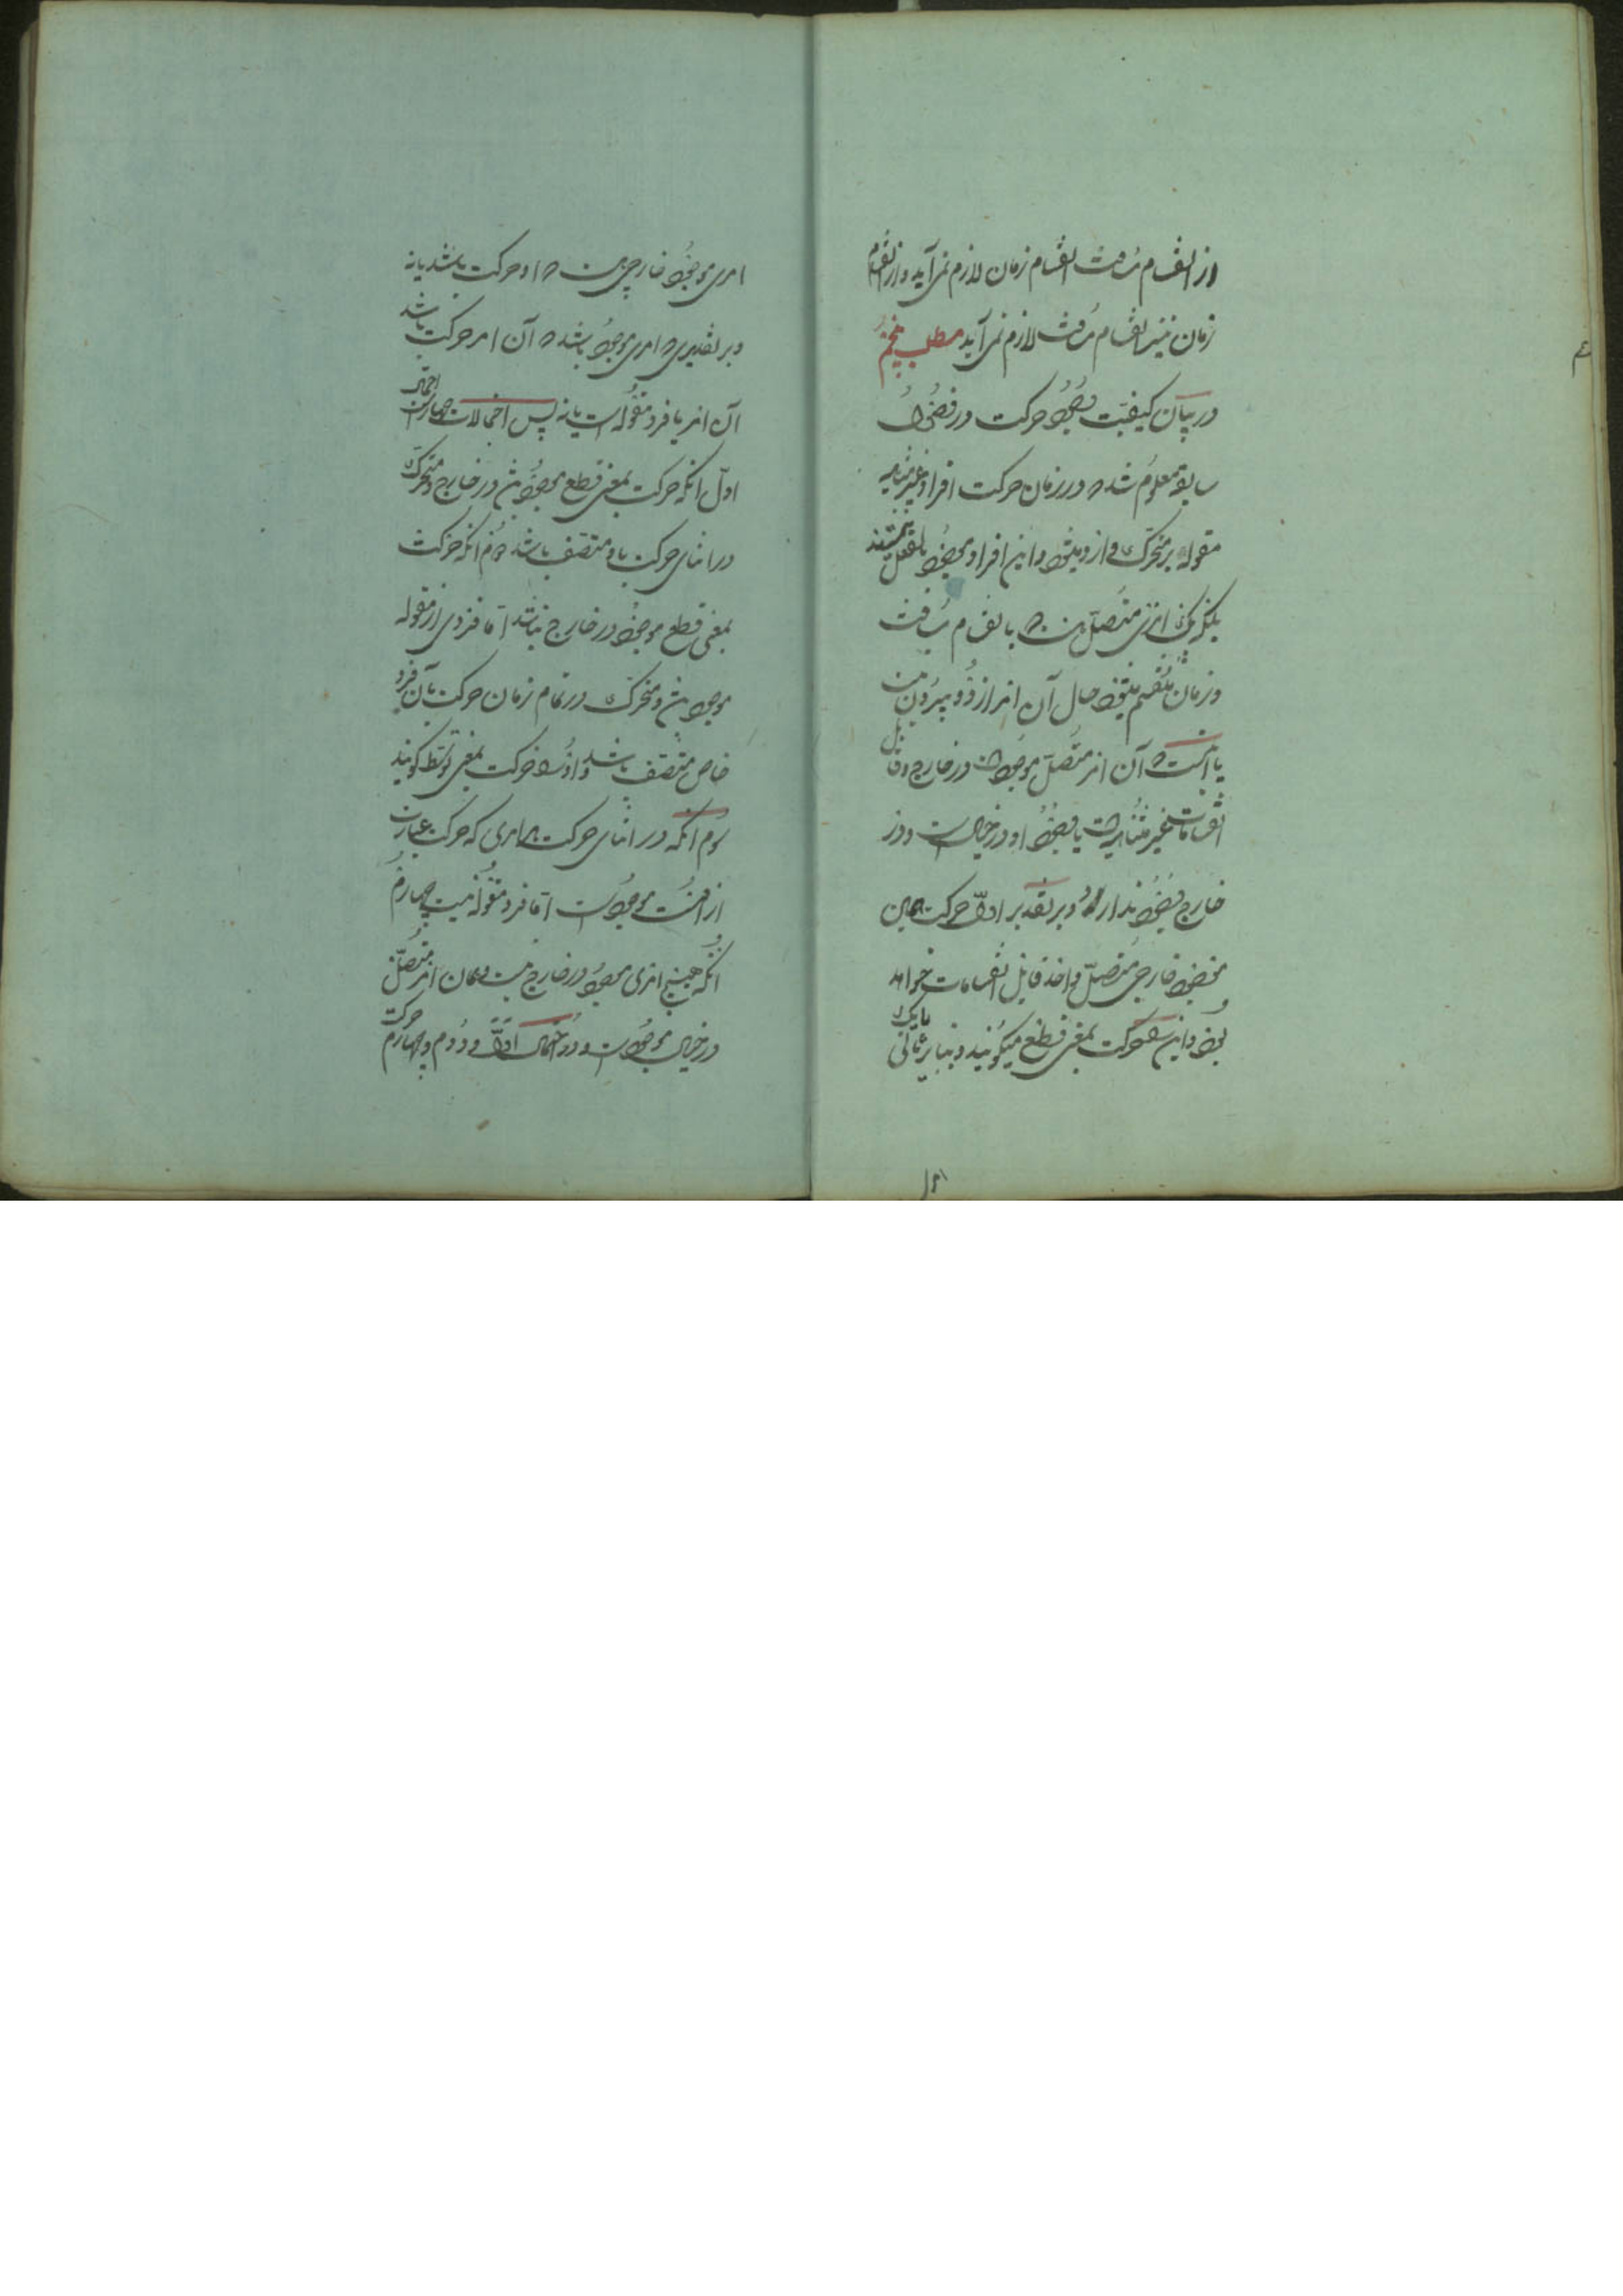 از انقسام مسافت انقسام زمان لازم نمی آید و از انقسام
زمان نیز انقسام مسافت لازم نمی آید مطلب پنجم
در بیان کیفیت وجود حرکت در فصول
سابق معلوم شد که در زمان حرکت افراد غیر متناهیه
مقوله بر متحرک وارد میشود و این افراد موجود بالفعل نیستند
بلکه یک امری متصل هست که بانقسام مسافت
و زمان منقسم میشود حال آن امر از دو بیرون نیست
یا اینست که آن امر متصل موجود است در خارج و قابل
انقسامات غیر متناهیست یا وجود او در خیال است و در
خارج وجود ندارد و بر تقدیر اول حرکت همین
موجود خارجی متصل واحد قابل انقسامات خواهد
بود و این را حرکت بمعنی قطع میگویند و بنا بر ثانی یا یک
امری موجود خارجی هست که او حرکت باشد یا نه
و بر تقدیری که امری موجود باشد که آن امر حرکت باشد
آن امر یا فرد مقوله است یا نه پس احتمالات چهار است احتمال
اول آنکه حرکت بمعنی قطع موجود باشد در خارج و متحرک
در اثنای حرکت باو متصف باشد دوم آنکه حرکت
بمعنی قطع موجود در خارج نباشد اما فردی از مقوله
موجود باشد و متحرک در تمام زمان حرکت بآن فرد
خاص متصف باشد و او را حرکت بمعنی توسط گویند
سوم آنکه در اثنای حرکت امری که حرکت عبارت
از اوست موجود است اما فرد مقوله نیست چهارم
آنکه هیچ امری موجود در خارج نیست و همان امر متصل
در خیال موجود است و در احتمال اول و دوم و چهارم حرکت